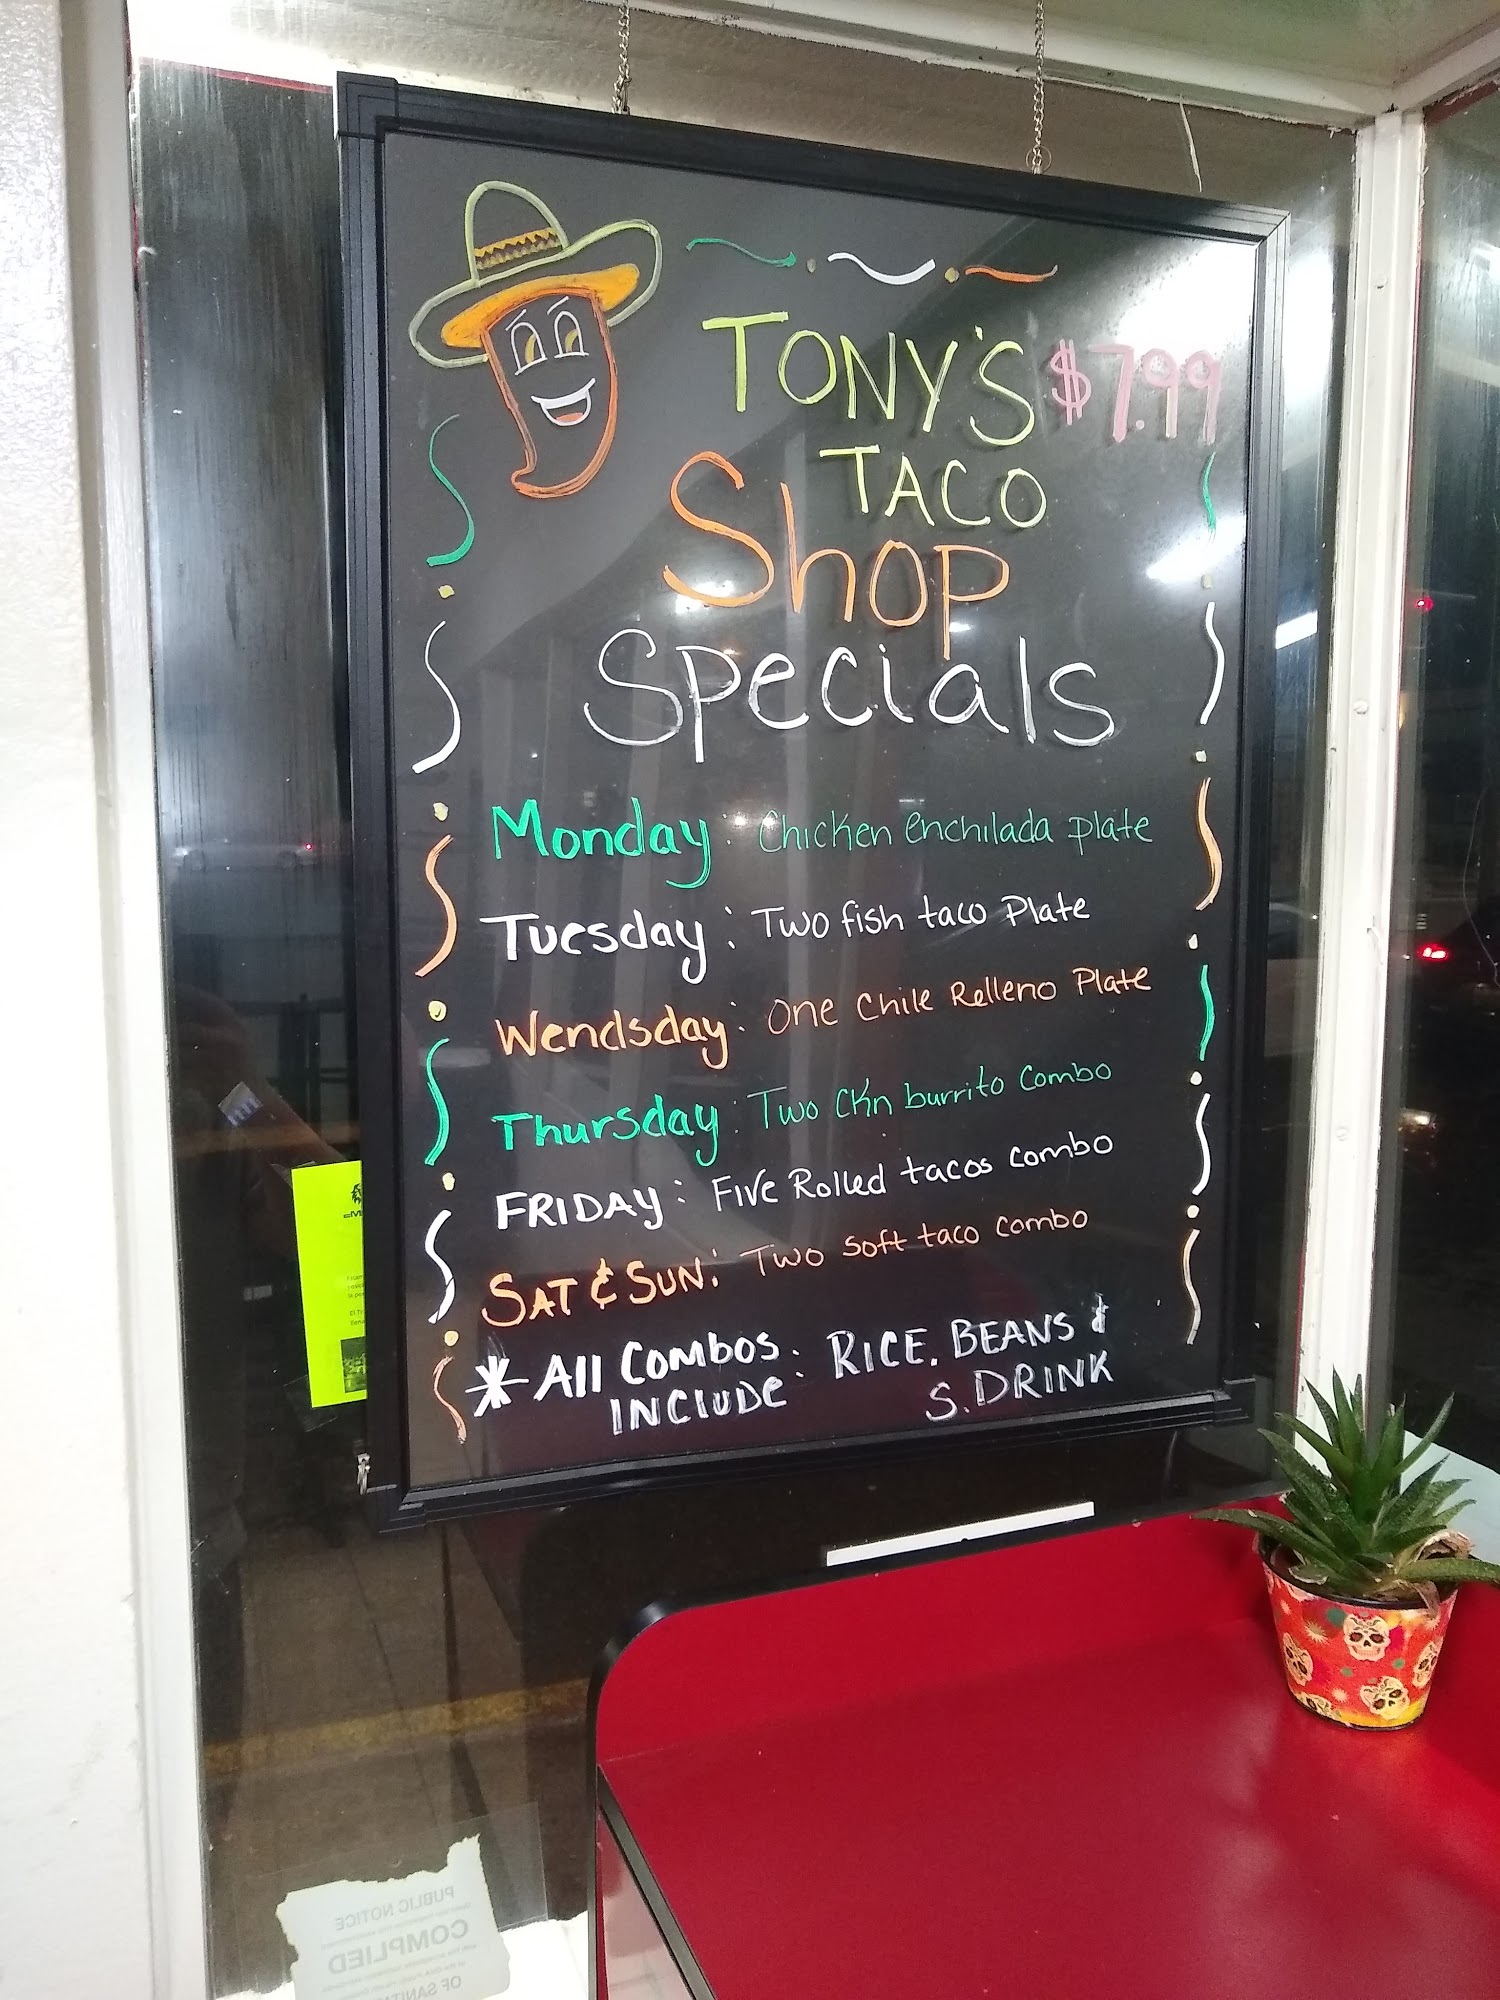 TONY'S $7.99
TACO
Shop
Specials
Monday: Chicken enchilada plate
Tuesday: Two fish taco Plate
Wendsday: One Chile Relleno Plate
Thursday: Two CKn burrito combo
FRIDAY: Five Rolled tacos combo
SAT & SUN: Two soft taco combo
* All Combos: RICE. BEANS &
INCLUDE S. DRINK
PUBLIC NOTICE
COMPLIED